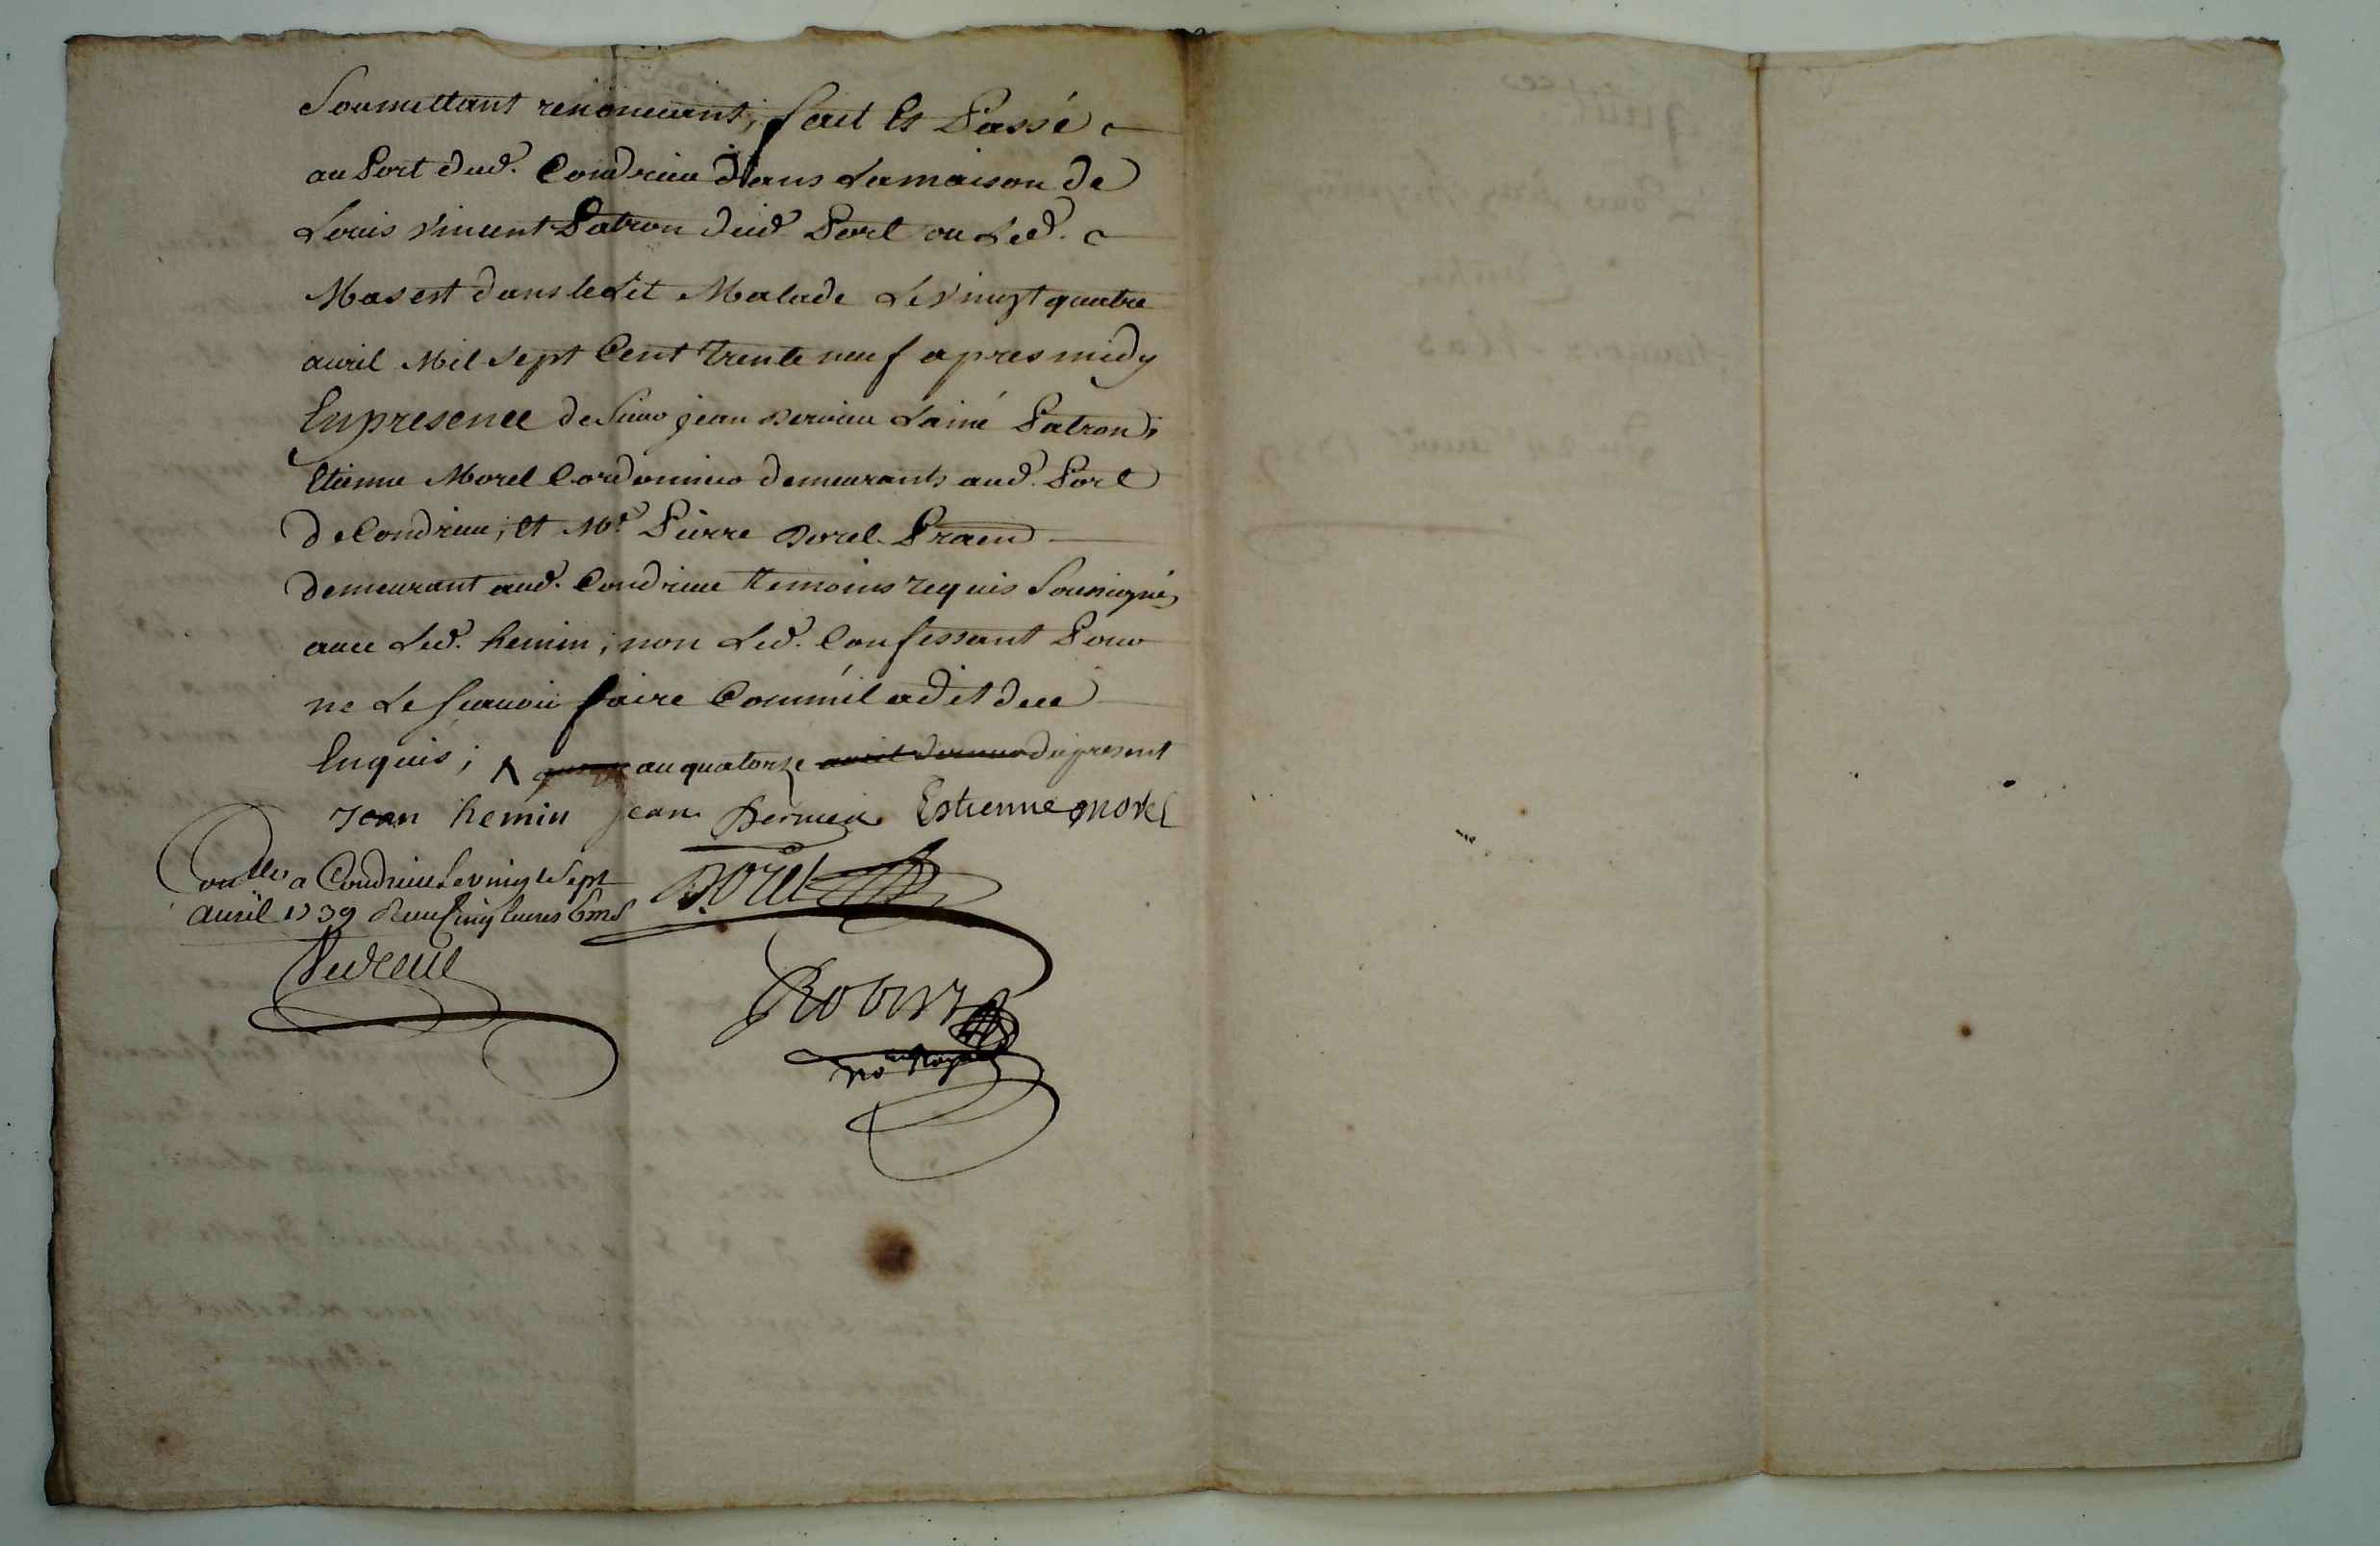 Soumettant renonceant; fait Et Passé
au Port dud. Condrieu dans Lamaison de
Louis Vincent Patron dud. Port ou Led.
Mas est dans le Lit Malade Le Vingt quatre
auril Mil Sept Cent trente neuf apres midy
Enpresence de Sieur jean Dervieu Lainé Patron,
Etienne Morel Cordonnier demeurants aud. Port
de Condrieu, et Me. Pierre Borel Praen
demeurant aud. Condrieu temoins requis Soussignés
auec Led. hemin, non Led. Confessant Pour
ne Le Scauoir faire Comm'il a dit de ce
Enquis; au quatorze dupresent
Jean hemin jean Dervieu Estienne morel
Borel
Conlle a Condrieu Le vingt Sept
auril 1739 Receu Cinq Liures
Robin
no Royal